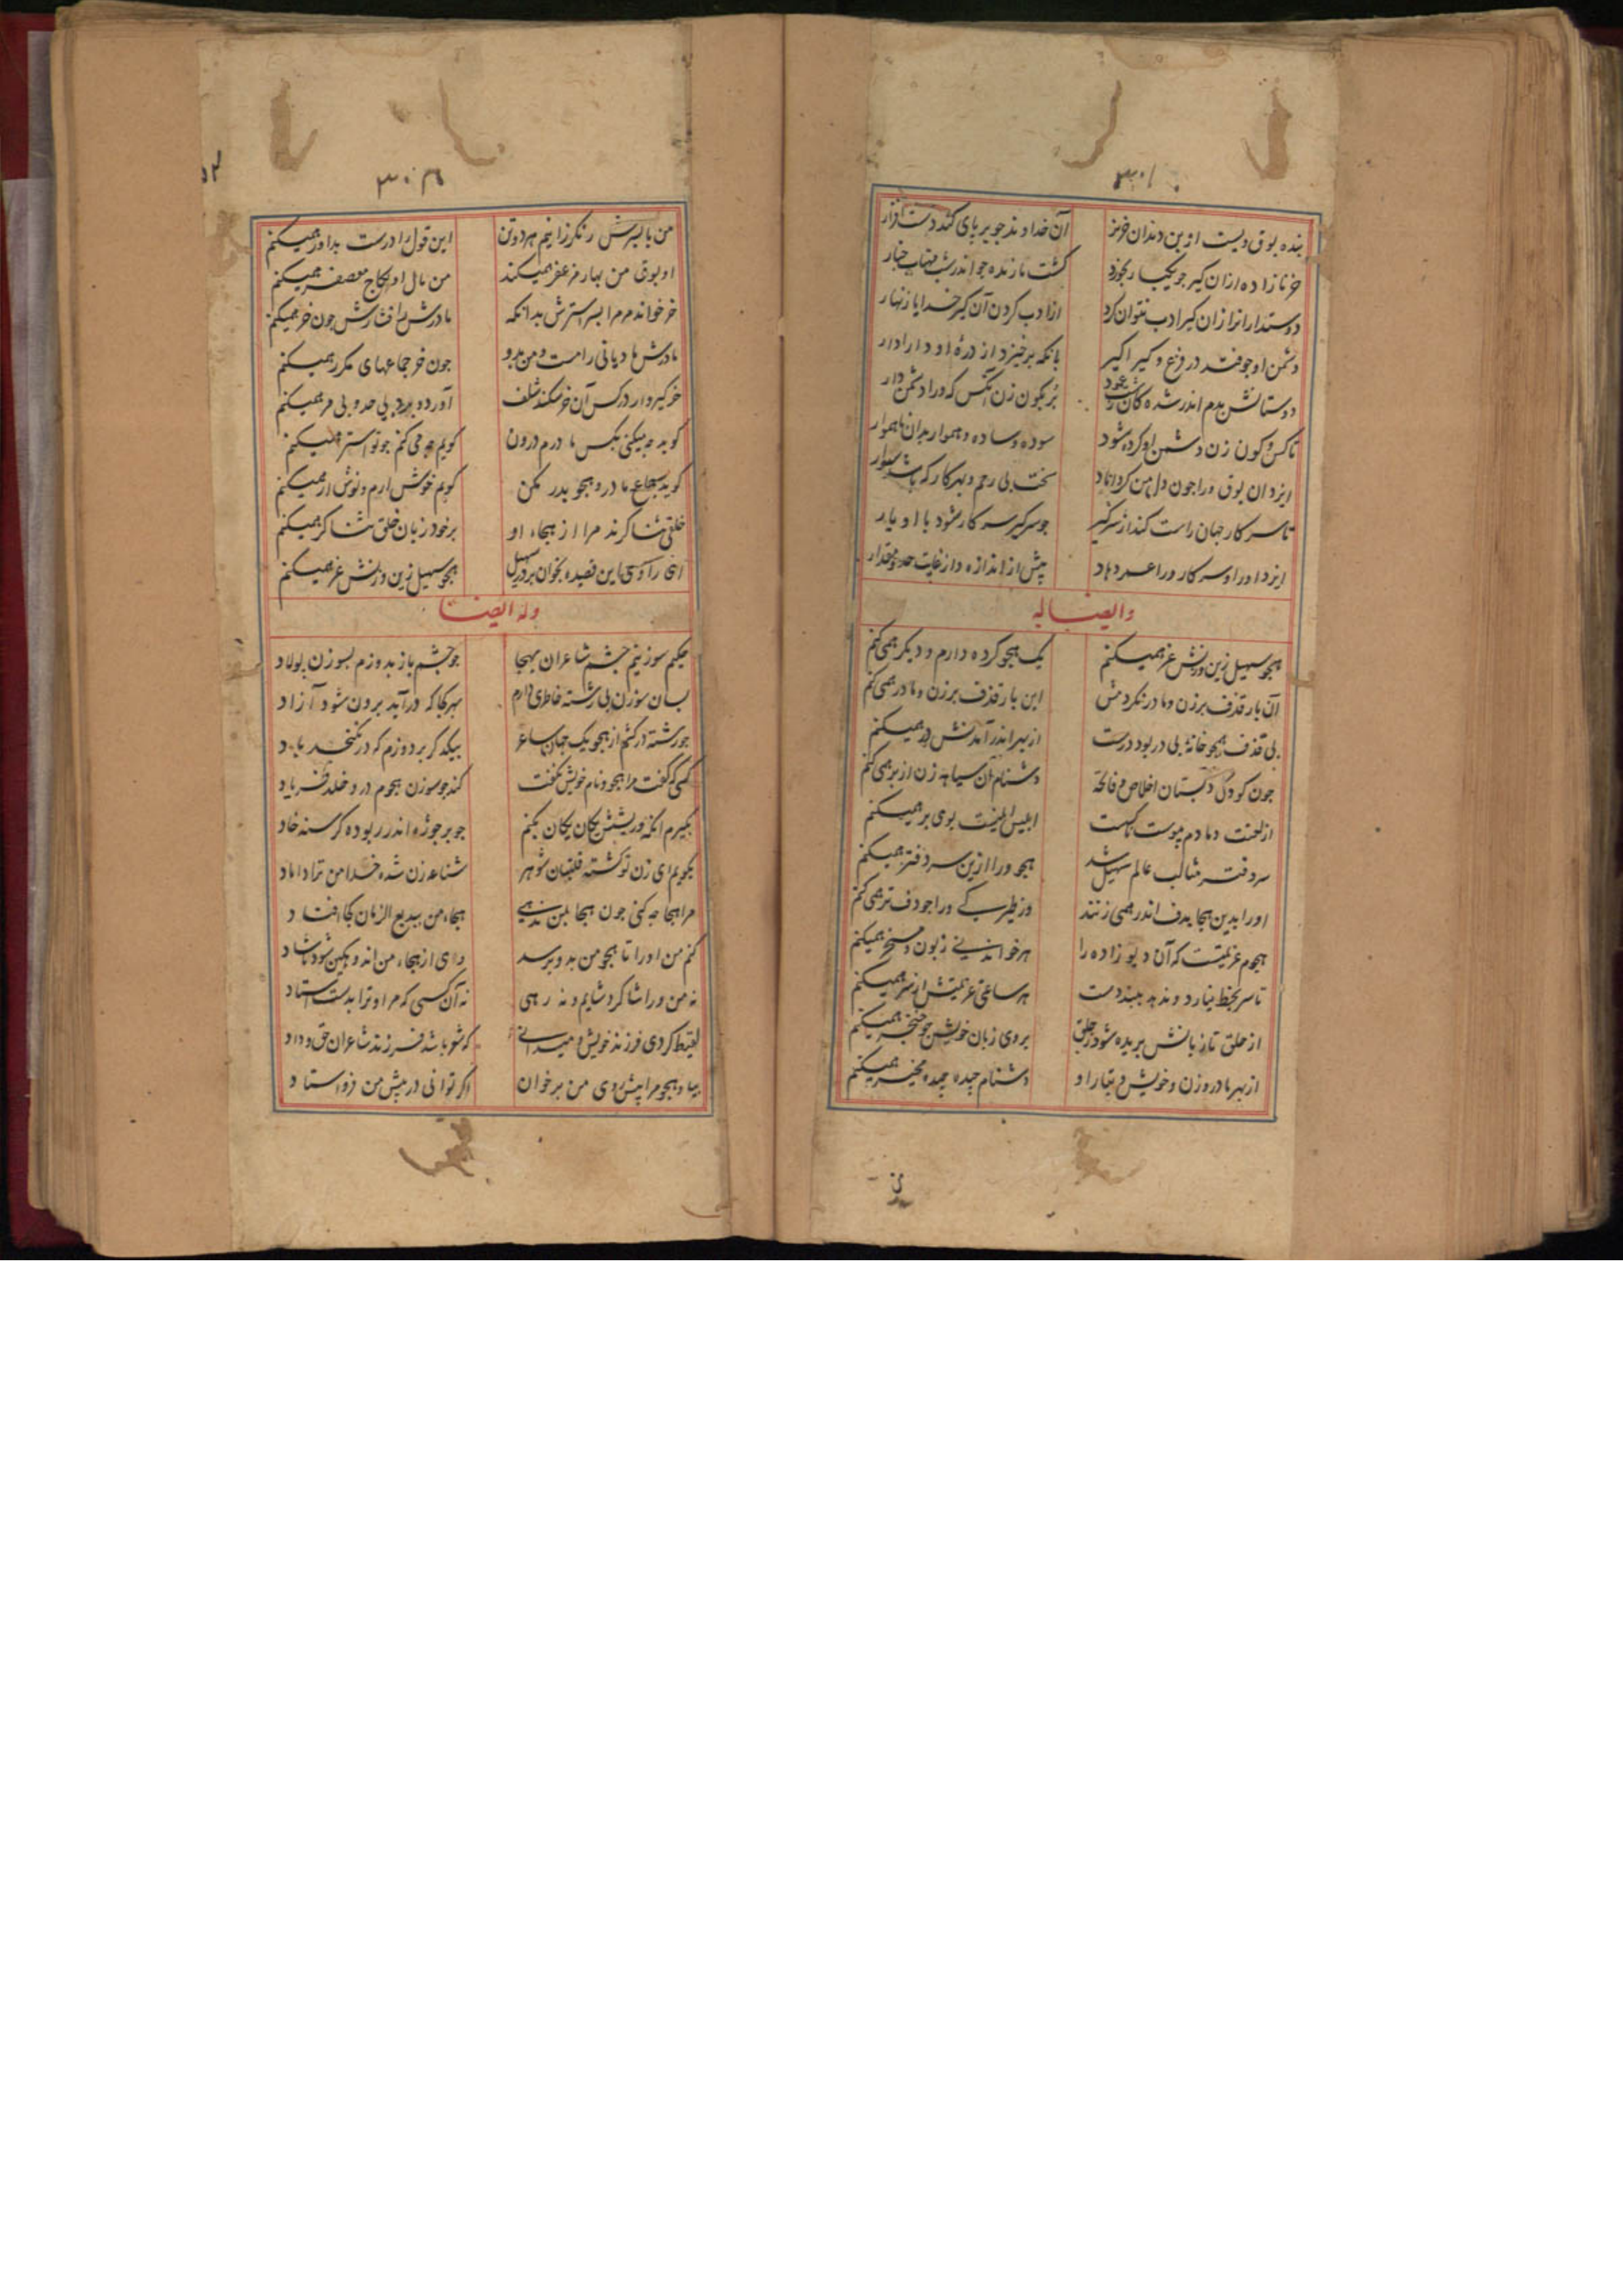 ۳۰۱
بنده بوق ویست ازین دندان خونز آن خداوند جو بر بای کند دست افزار
خر نازاده ازان کیر جو یکبار بخورد کشت نازنده جو اندر شب مهتاب
دوستدارانرا ازان کیر ادب نتوان کرد از ادب کردن آن کیر خدایا زنهار
دشمن او جو فتد در فزع و کیر اکیر بانکه برخیزد از دره او دارادار
دوستانش بدم اندر شده کان بر کون زن آنکس که ورا دشمن دار
تا کس و کون زن دشمن او کرده شود سوده و ساده و هموار بدان ناهموار
ایزد آن بوق ورا جون دل من کرداناد سخت بی رحم و بهر کار که باشد
تا سر کار جهان راست کند از سر کیر جو سر کیر سر کار شود با او یار
ایزد او را و سر کار ورا عمر دهاد پیش از اندازه و از غایت حد و مقدار
و ایضا له
هجو سهیل زین و زنش غر همیکنم یک هجو کرده دارم و دیکر همی کنم
آن بار قذف برزن و مادر نکردمش این بار قذف برزن و مادر همی کنم
بی قذف هجو خانهٔ بی در بود درست از بهر اندر آمدنش در همیکنم
جون کودکی دبستان اخلاص و فاتحه دشنام آن سیاه زن از بر همی کنم
از لعنت دمادم پوست ابلیس بوی بر همیکنم
سر دفتر مثالب عالم سهیل شد هجو ورا ازین سر دفتر همیکنم
او را بدین هجا بدف اندر همی زنند وز طیرکی ورا جو دف تر همی کنم
هجوم عزیمتست که آن دیو زاده را هر خواندنی زبون و مسخر همیکنم
تا سر بخط نیارد و ندهد ببند دست هر ساعتی عزیمتش از سر همیکنم
از حلق تا زبانش بریده شود بروی زبان خویش جو خنجر همیکنم
از بهر مادر و زن و خویش و تبار او دشنام جیده جیده مخیر همیکنم
۳۰۲
من با پسرش رنکرزانیم هر دو تن این قول را درست بداور همیکنم
او بوق من بهار مزعفر همیکند من مال او بکاج معصفر همیکنم
خر خواند مر مرا پسر استرش بدانکه مادرش را فشارش جون خر همیکنم
مادرش مادیانی رامست و من بدو جون خر جماعهای مکرر همیکنم
خر کیروار در کس آن خر شلف آورد و برد بی حد و بی مر همیکنم
کوید جه میکنی بکس مادرم درون کویم جه می کنم جو تو استر همیکنم
کوید سجاع مادر و هجو پدر مکن کویم خوش ارم و نوش از همیکنم
خلقی ثنا کرند مرا از هجاء او بر خود زبان خلق ثنا کر همیکنم
ای راوی این قصیده بخوان بر در سهیل هجو سهیل زین و زنش غر همیکنم
وله ایضا
حکیم سوزنیم جشم شاعران بهجا جو جشم باز بدوزم بسوزن پولاد
بسان سوزن بی رشته خاطری دارم بهر کجا که درآید برون شود آزاد
جو رشته در کشم از هجو یک جهان شاعر بیکدکر بر دوزم که در نکنجد باد
کسی که کفت مرا هجو و نام خویش نکفت کند جو سوزن هجوم درو خلد فریاد
بکیرم آنکه و ریشش یکان یکان بکنم جو پر جوژه اندر ربوده کرسنه خاد
بکویم ای زن تو کشته قلتبان شوهر شناعه زن شده خدا من ترا داماد
مرا هجا جه کنی جون هجا بمن ندهی هجاء من ببدیع الزمان کجا افتاد
کنم من او را تا هجو من بدو برسد رای از هجاء من اندوهکین شود ناشاد
نه من ورا شاکرد شایم و نه رهی نه آن کسی که مر او ترا بدست استاد
لقیط کردی فرزند خویش و میدانی که شو باشد فرزند شاعران حق و داد
بیا و هجو مرا پیش روی من برخوان اکر توانی در پیش من فرواستاد